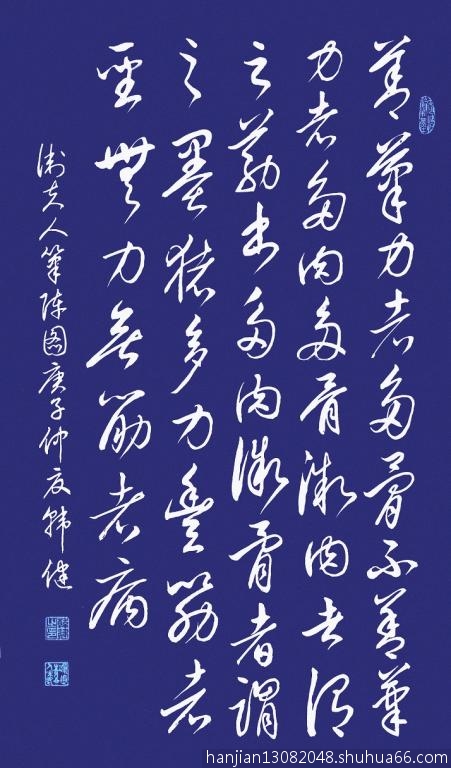 善筆力者多骨不善筆
力者多肉多骨微肉者謂
之筋書多肉微骨者謂
之墨猪多力豐筋者
聖無力無筋者病
衛夫人筆陣圖庚子仲夏韓健
hanjian13082048.shuhua66.com